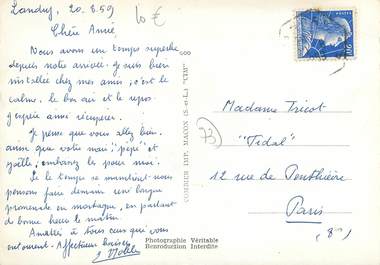 Landry, 20.8.59
10 €
Chère Amie
Nous avons un temps superbe
depuis notre arrivée. Je suis bien
installée chez mes amis ; c'est le
calme. le bon air et le repos.
J'espère ainsi récupérer.
Je pense que vous allez bien
ainsi que votre mari "pépé" et
Joëlle, embrassez les pour moi.
Si le temps se maintient nous
pensons faire demain une longue
promenade en montagne, en partant
de bonne heure le matin.
Amitiés à tous ceux qui vous
entourent. Affectueux baisers
COMBIER IMP. MACON (S.-et-L.) "CIM"
Photographie Véritable
Reproduction Interdite
POSTES
Madame Tricot
"Tidal"
73
12 rue de Penthièvre
Paris
(8e)